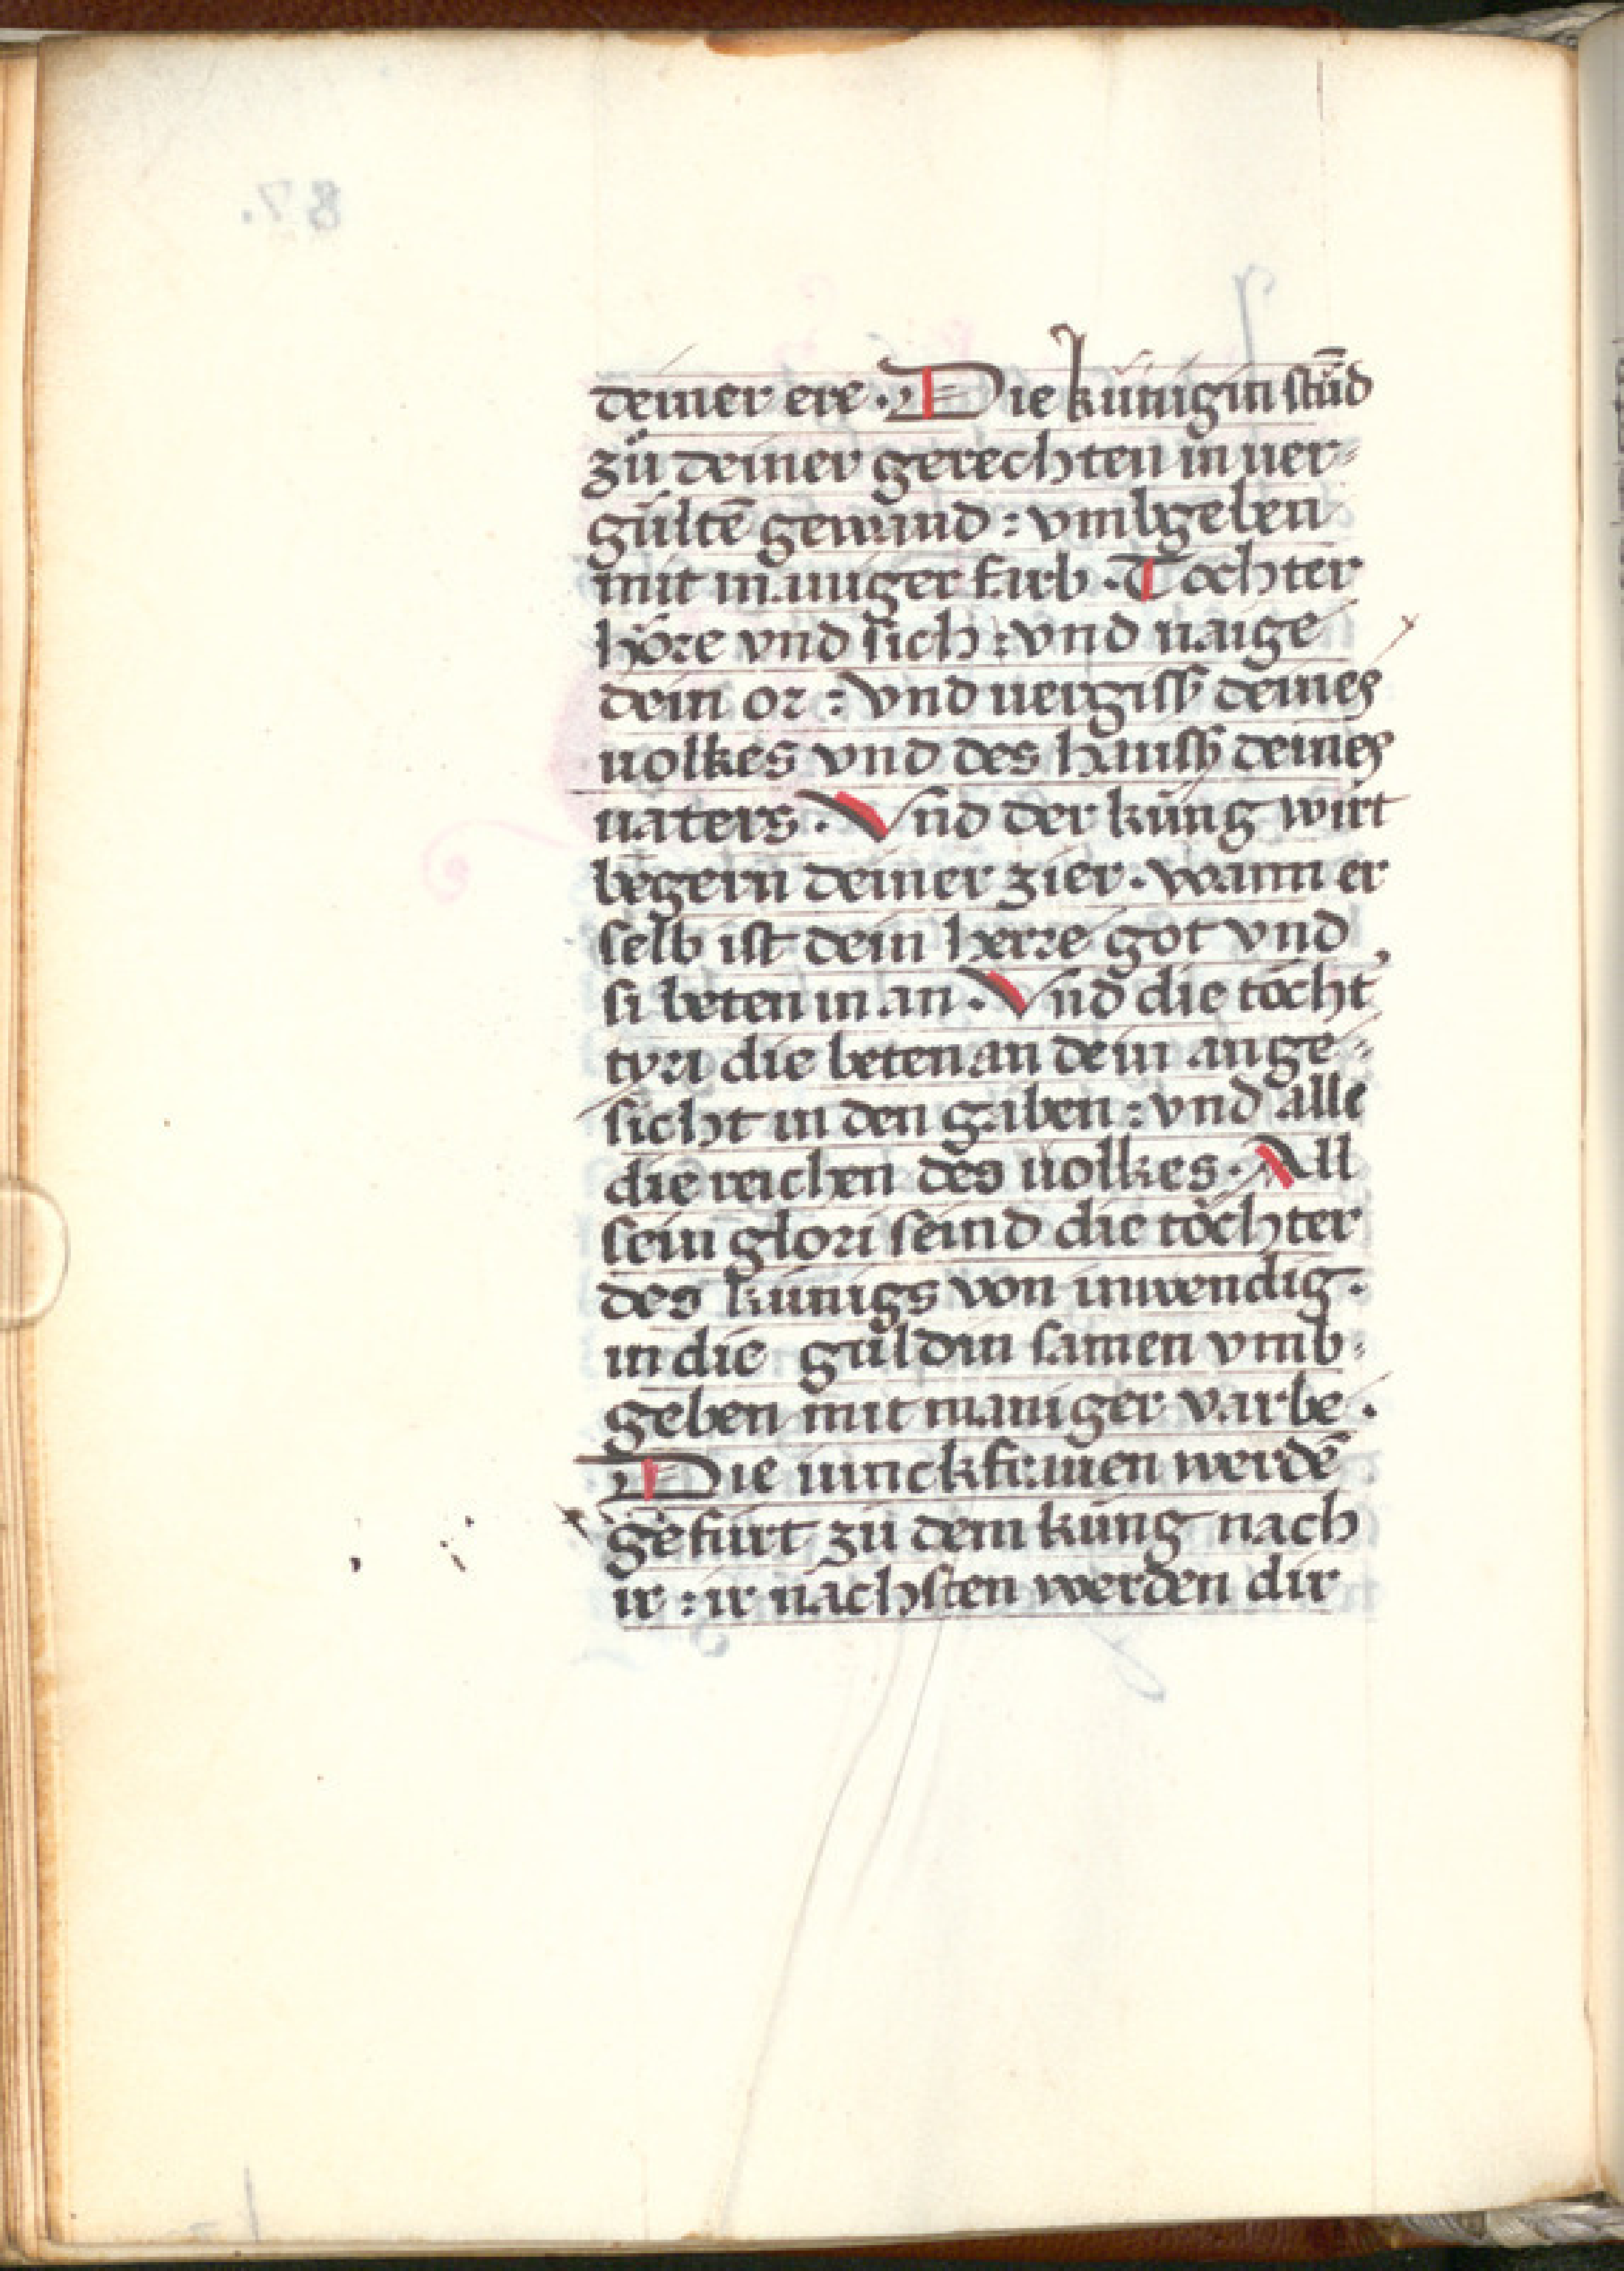 deiner ere · Die künigin stůnd
zů deiner gerechten in uer-
gültē gewand : vmbgeben
mit maniger farb · Tochter
höre vnd sich : vnd naige
dein or : vnd uergiss deines
uolkes vnd des hauss deines
uaters · Vnd der küng wirt
begern deiner zier · wann er
selb ist dein herre got vnd
si beten in an · Vnd die töcht'
tyri die beten an dein ange-
sicht in den gaben : vnd alle
die reichen des uolkes · All
sein glori seind die töchter
des künigs von inwendig ·
in die guldin samen vmb-
geben mit maniger varbe ·
Die iunckfrauen werdē
gefürt zů dem küng nach
ir : ir nächsten werden dir